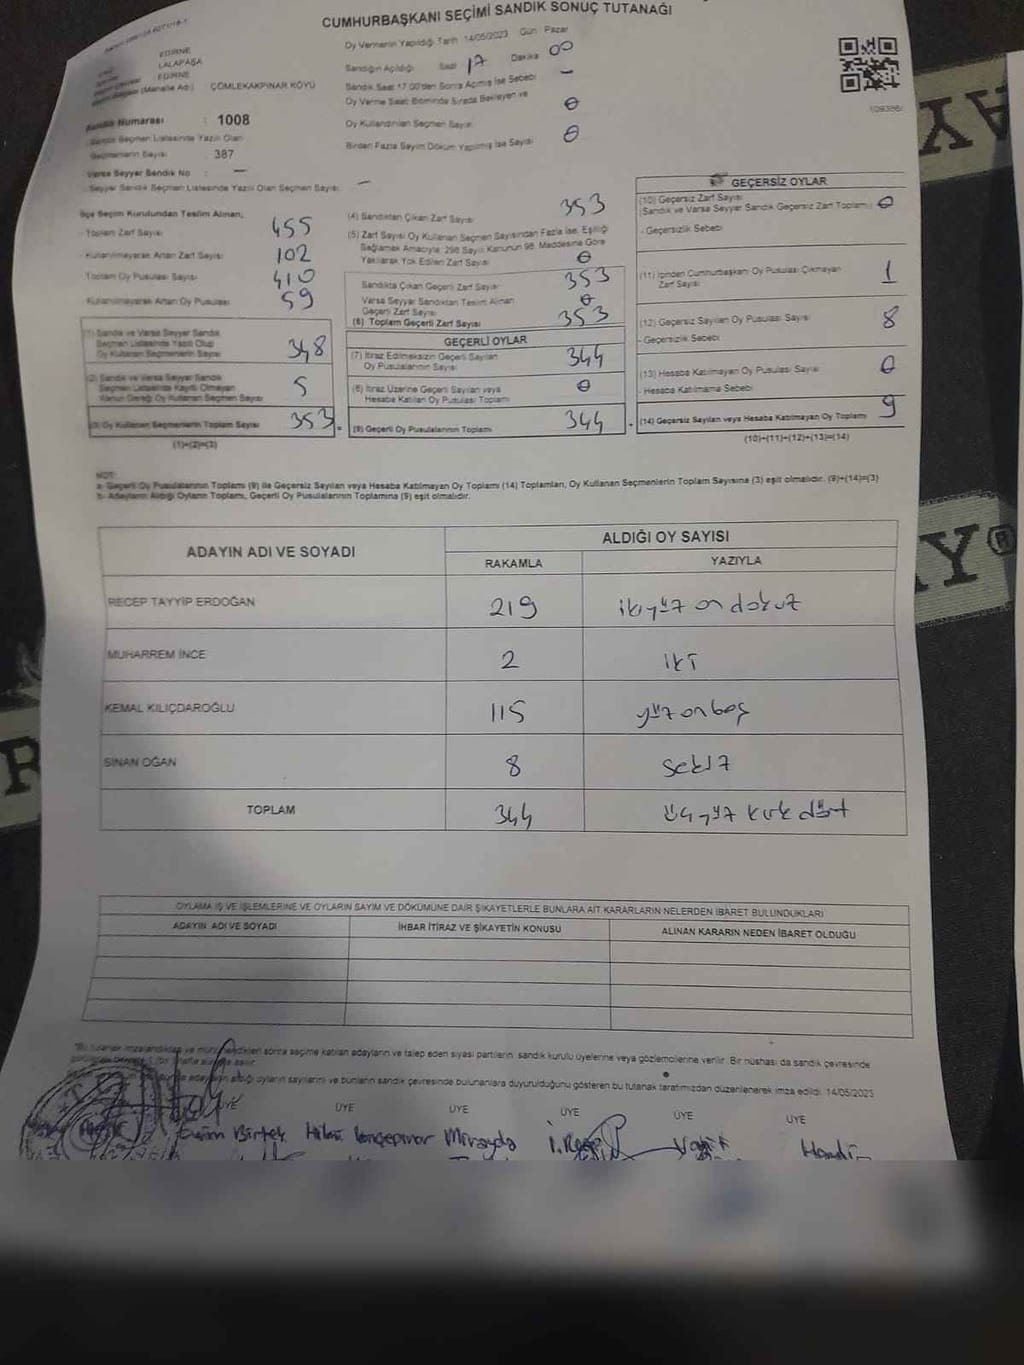 CUMHURBAŞKANI SEÇİMİ SANDIK SONUÇ TUTANAĞI
EDİRNE
LALAPAŞA
EDİRNE
(Mahalle Adı) ÇÖMLEKAKPINAR KÖYÜ
Sandık Numarası : 1008
Sandık Seçmen Listesinde Yazılı Olan
Seçmenlerin Sayısı : 387
Varsa Seyyar Sandık No : —
Seyyar Sandık Seçmen Listesinde Yazılı Olan Seçmen Sayısı: —
Oy Vermenin Yapıldığı Tarih 14/05/2023 Gün Pazar
Sandığın Açıldığı Saat 17 Dakika 00
Sandık Saat 17.00'den Sonra Açılmış İse Sebebi —
Oy Verme Saati Bitiminde Sırada Bekleyen ve
Oy Kullandırılan Seçmen Sayısı 0
Birden Fazla Sayım Döküm Yapılmış İse Sayısı 0
İlçe Seçim Kurulundan Teslim Alınan,
- Toplam Zarf Sayısı 455
- Kullanılmayarak Artan Zarf Sayısı 102
Toplam Oy Pusulası Sayısı 410
Kullanılmayarak Artan Oy Pusulası 59
(1) Sandık ve Varsa Seyyar Sandık
Seçmen Listesinde Yazılı Olup
Oy Kullanan Seçmenlerin Sayısı 348
(2) Sandık ve Varsa Seyyar Sandık
Seçmen Listesinde Kayıtlı Olmayan
Kanun Gereği Oy Kullanan Seçmen Sayısı 5
(3) Oy Kullanan Seçmenlerin Toplam Sayısı 353
(1)+(2)=(3)
(4) Sandıktan Çıkan Zarf Sayısı 353
(5) Zarf Sayısı Oy Kullanan Seçmen Sayısından Fazla İse, Eşitliği
Sağlamak Amacıyla, 298 Sayılı Kanunun 98. Maddesine Göre
Yakılarak Yok Edilen Zarf Sayısı 0
Sandıkta Çıkan Geçerli Zarf Sayısı 353
Varsa Seyyar Sandıktan Teslim Alınan
Geçerli Zarf Sayısı 0
(6) Toplam Geçerli Zarf Sayısı 353
GEÇERLİ OYLAR
(7) İtiraz Edilmeksizin Geçerli Sayılan
Oy Pusulalarının Sayısı 344
(8) İtiraz Üzerine Geçerli Sayılan veya
Hesaba Katılan Oy Pusulası Toplamı 0
(9) Geçerli Oy Pusulalarının Toplamı 344
GEÇERSİZ OYLAR
(10) Geçersiz Zarf Sayısı
(Sandık ve Varsa Seyyar Sandık Geçersiz Zarf Toplamı) 0
- Geçersizlik Sebebi
(11) İçinden Cumhurbaşkanı Oy Pusulası Çıkmayan
Zarf Sayısı 1
(12) Geçersiz Sayılan Oy Pusulası Sayısı 8
- Geçersizlik Sebebi
(13) Hesaba Katılmayan Oy Pusulası Sayısı 0
- Hesaba Katılmama Sebebi
(14) Geçersiz Sayılan veya Hesaba Katılmayan Oy Toplamı 9
(10)+(11)+(12)+(13)=(14)
NOT:
a- Geçerli Oy Pusulalarının Toplamı (9) ile Geçersiz Sayılan veya Hesaba Katılmayan Oy Toplamı (14) Toplamları, Oy Kullanan Seçmenlerin Toplam Sayısına (3) eşit olmalıdır. (9)+(14)=(3)
b- Adayların Aldığı Oyların Toplamı, Geçerli Oy Pusulalarının Toplamına (9) eşit olmalıdır.
ADAYIN ADI VE SOYADI ALDIĞI OY SAYISI
RAKAMLA YAZIYLA
RECEP TAYYİP ERDOĞAN 219 ikiyüz on dokuz
MUHARREM İNCE 2 iki
KEMAL KILIÇDAROĞLU 115 yüz onbeş
SİNAN OĞAN 8 sekiz
TOPLAM 344 üçyüz kırk dört
OYLAMA İŞ VE İŞLEMLERİNE VE OYLARIN SAYIM VE DÖKÜMÜNE DAİR ŞİKAYETLERLE BUNLARA AİT KARARLARIN NELERDEN İBARET BULUNDUKLARI
ADAYIN ADI VE SOYADI İHBAR İTİRAZ VE ŞİKAYETİN KONUSU ALINAN KARARIN NEDEN İBARET OLDUĞU
sonra seçime katılan adayların ve talep eden siyasi partilerin sandık kurulu üyelerine veya gözlemcilerine verilir. Bir nüshası da sandık çevresinde
aldığı oyların sayılarını ve bunların sandık çevresinde bulunanlara duyurulduğunu gösteren bu tutanak tarafımızdan düzenlenerek imza edildi. 14/05/2023
ÜYE ÜYE ÜYE ÜYE ÜYE ÜYE
Birtek Mirayda
AY
AY®
R